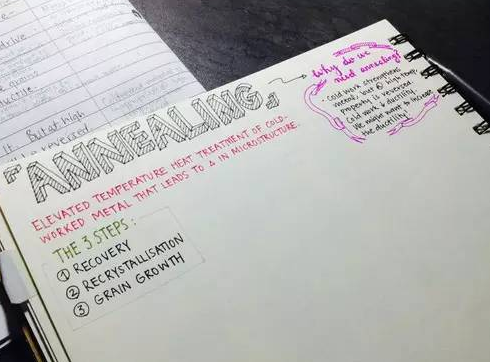 drive
grains
ductile
it. But at high
reversed
"ANNEALING"
ELEVATED TEMPERATURE HEAT TREATMENT OF COLD-
WORKED METAL THAT LEADS TO Δ IN MICROSTRUCTURE.
THE 3 STEPS:
① RECOVERY
② RECRYSTALLISATION
③ GRAIN GROWTH
Why do we
need annealing?
· Cold work strengthens
metal, but @ high temp.
property is reversed.
· Cold work ↓ ductility.
We might want to increase
the ductility!